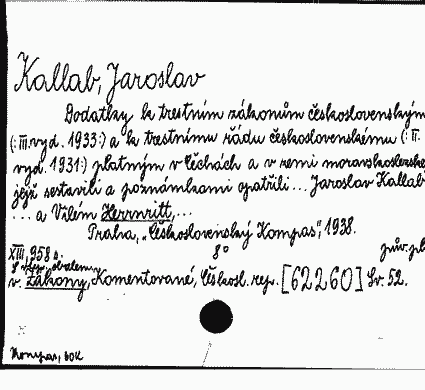 Kallab, Jaroslav
Dodatky k trestním zákonům československým
(: III. vyd. 1933:) a k trestnímu řádu československému (: II.
vyd. 1931:) platným v Čechách a v zemi moravskoslezské
jejž sestavili a poznámkami opatřili... Jaroslav Kallab
... a Vilém Herrnritt,...
Praha, „Československý Kompas", 1938.
XIII, 958 s. 8° pův. pl.
v. Zákony, Komentované, Českosl. rep. [62260] Sv. 52.
Kompas, 60K